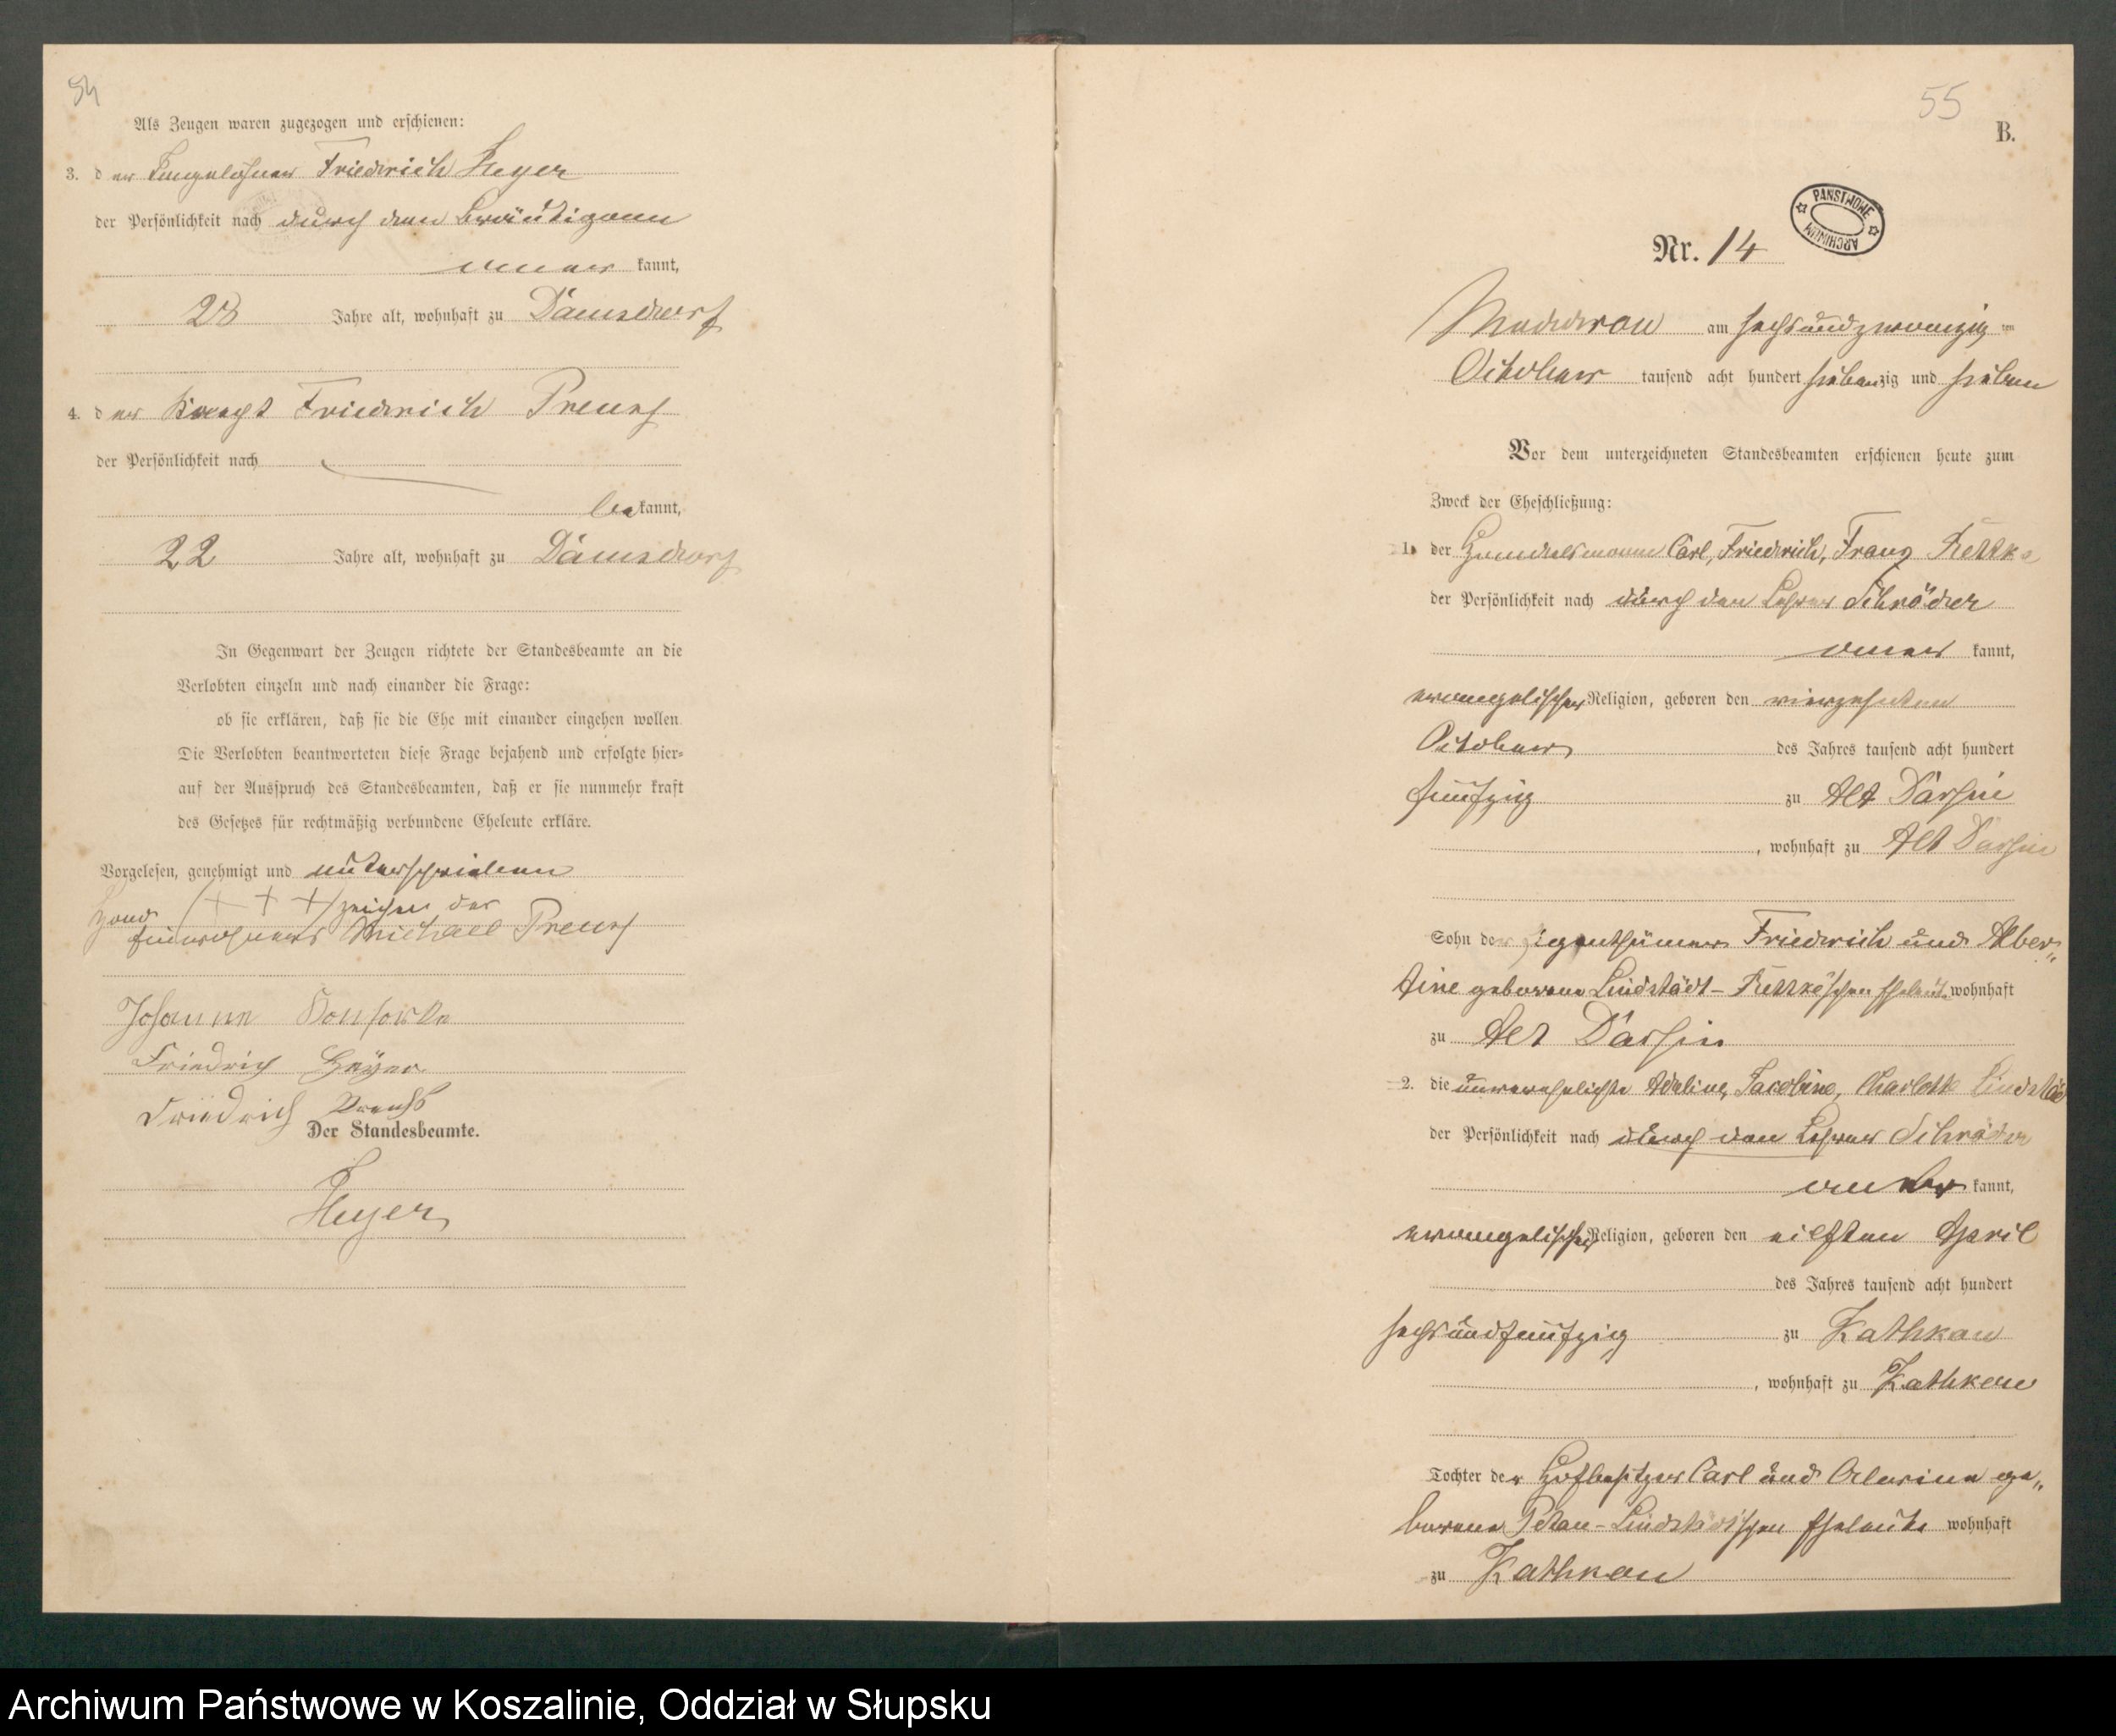 54
Als Zeugen waren zugezogen und erschienen:
3. der Tagelöhner Friedrich Heyer
der Persönlichkeit nach durch den Bräutigam
aner kannt,
28 Jahre alt, wohnhaft zu Dämsdorf
4. der Knecht Friedrich Preuss
der Persönlichkeit nach
be kannt,
22 Jahre alt, wohnhaft zu Dämsdorf
In Gegenwart der Zeugen richtete der Standesbeamte an die
Verlobten einzeln und nach einander die Frage:
ob sie erklären, daß sie die Ehe mit einander eingehen wollen.
Die Verlobten beantworteten diese Frage bejahend und erfolgte hier=
auf der Ausspruch des Standesbeamten, daß er sie nunmehr kraft
des Gesetzes für rechtmäßig verbundene Eheleute erkläre.
Vorgelesen, genehmigt und unterschrieben
Hand (+ + +) zeichen des
Einwohners Michael Preuss
Johanne
Friedrich Heÿer
Friedrich Preuss
Der Standesbeamte.
Heyer
55
B.
PAŃSTWOWE ARCHIWUM
Nr. 14
Mudderow am sechsundzwanzig ten
October tausend acht hundert siebenzig und sieben
Vor dem unterzeichneten Standesbeamten erschienen heute zum
Zweck der Eheschließung:
1. der Handelsmann Carl, Friedrich, Franz
der Persönlichkeit nach durch den Lehrer Schröder
aner kannt,
evangelischer Religion, geboren den vierzehnten
October des Jahres tausend acht hundert
fünfzig zu Alt Därsin
, wohnhaft zu Alt Därsin
Sohn der Eigenthümer Friedrich und Alber„
tine geborene Lindstädt - Eheleute wohnhaft
zu Alt Därsin
2. die unverehelichte Adeline, Jacobine, Charlotte Lindstädt
der Persönlichkeit nach durch den Lehrer Schröder
aner kannt,
evangelischer Religion, geboren den eilften April
des Jahres tausend acht hundert
sechsundfünfzig zu Kathkow
, wohnhaft zu Kathkow
Tochter der Hofbesitzer Carl und ge„
borene - Lindstädt'schen Eheleute wohnhaft
zu Kathkow
Archiwum Państwowe w Koszalinie, Oddział w Słupsku